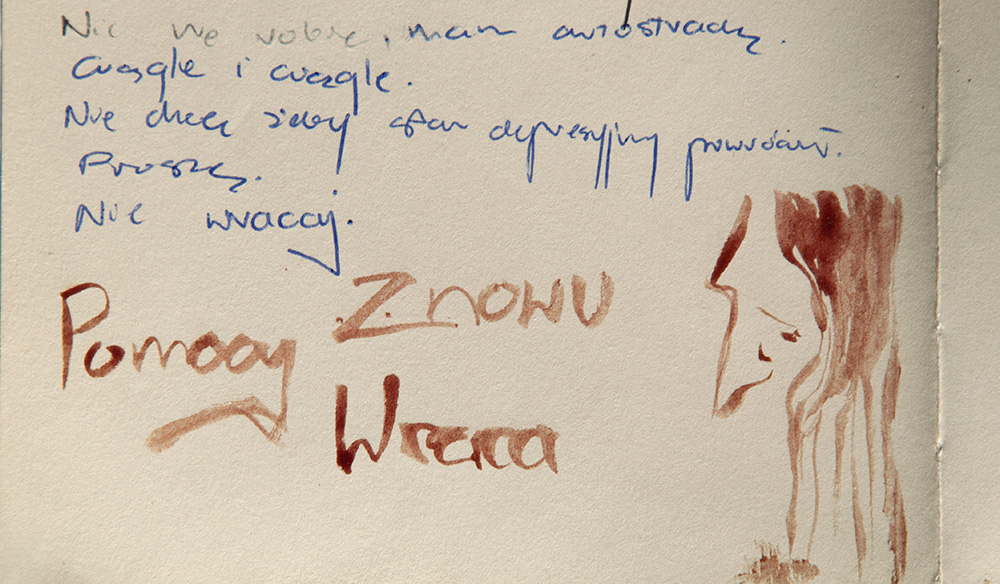 Nie we robię, mam autostradę.
Ciągle i ciągle.
Nie chcę żeby stan depresyjny powrócił.
Proszę.
Nie wracaj.
Pomocy
Znowu
Wraca